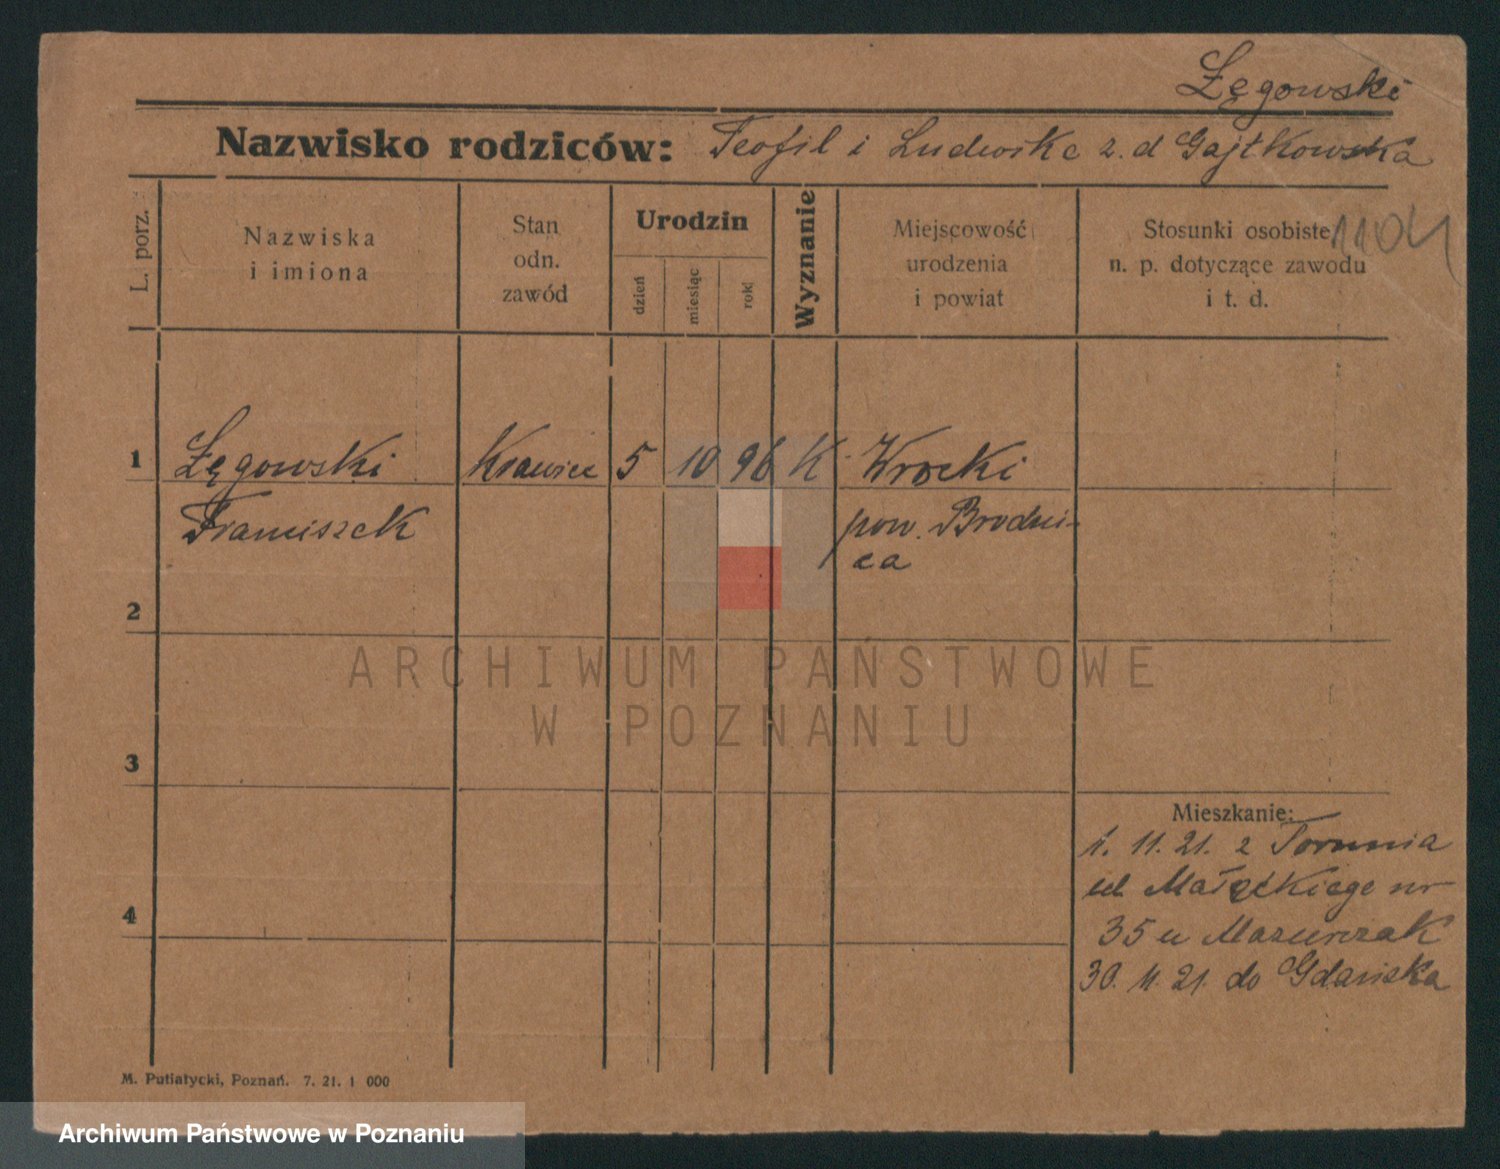 Łęgowski
Nazwisko rodziców: Teofil i Ludwika z. d Gajtkowska
L. porz.
Nazwiska
i imiona
Stan
odn.
zawód
Urodzin
dzień
miesiąc
rok
Wyznanie
Miejscowość
urodzenia
i powiat
Stosunki osobiste
n. p. dotyczące zawodu
i t. d.
1104
1 Łęgowski Krawiec 5 10 96 K Wrocki
Franciszek pow. Brodni-
ca
2
3
4
Mieszkanie:
1. 11. 21. z Torunia
ul. Małeckiego nr
35 u Mazurczak
30. 11. 21. do Gdańska
M. Putiatycki, Poznań. 7. 21. 1 000
ARCHIWUM PAŃSTWOWE
W POZNANIU
Archiwum Państwowe w Poznaniu